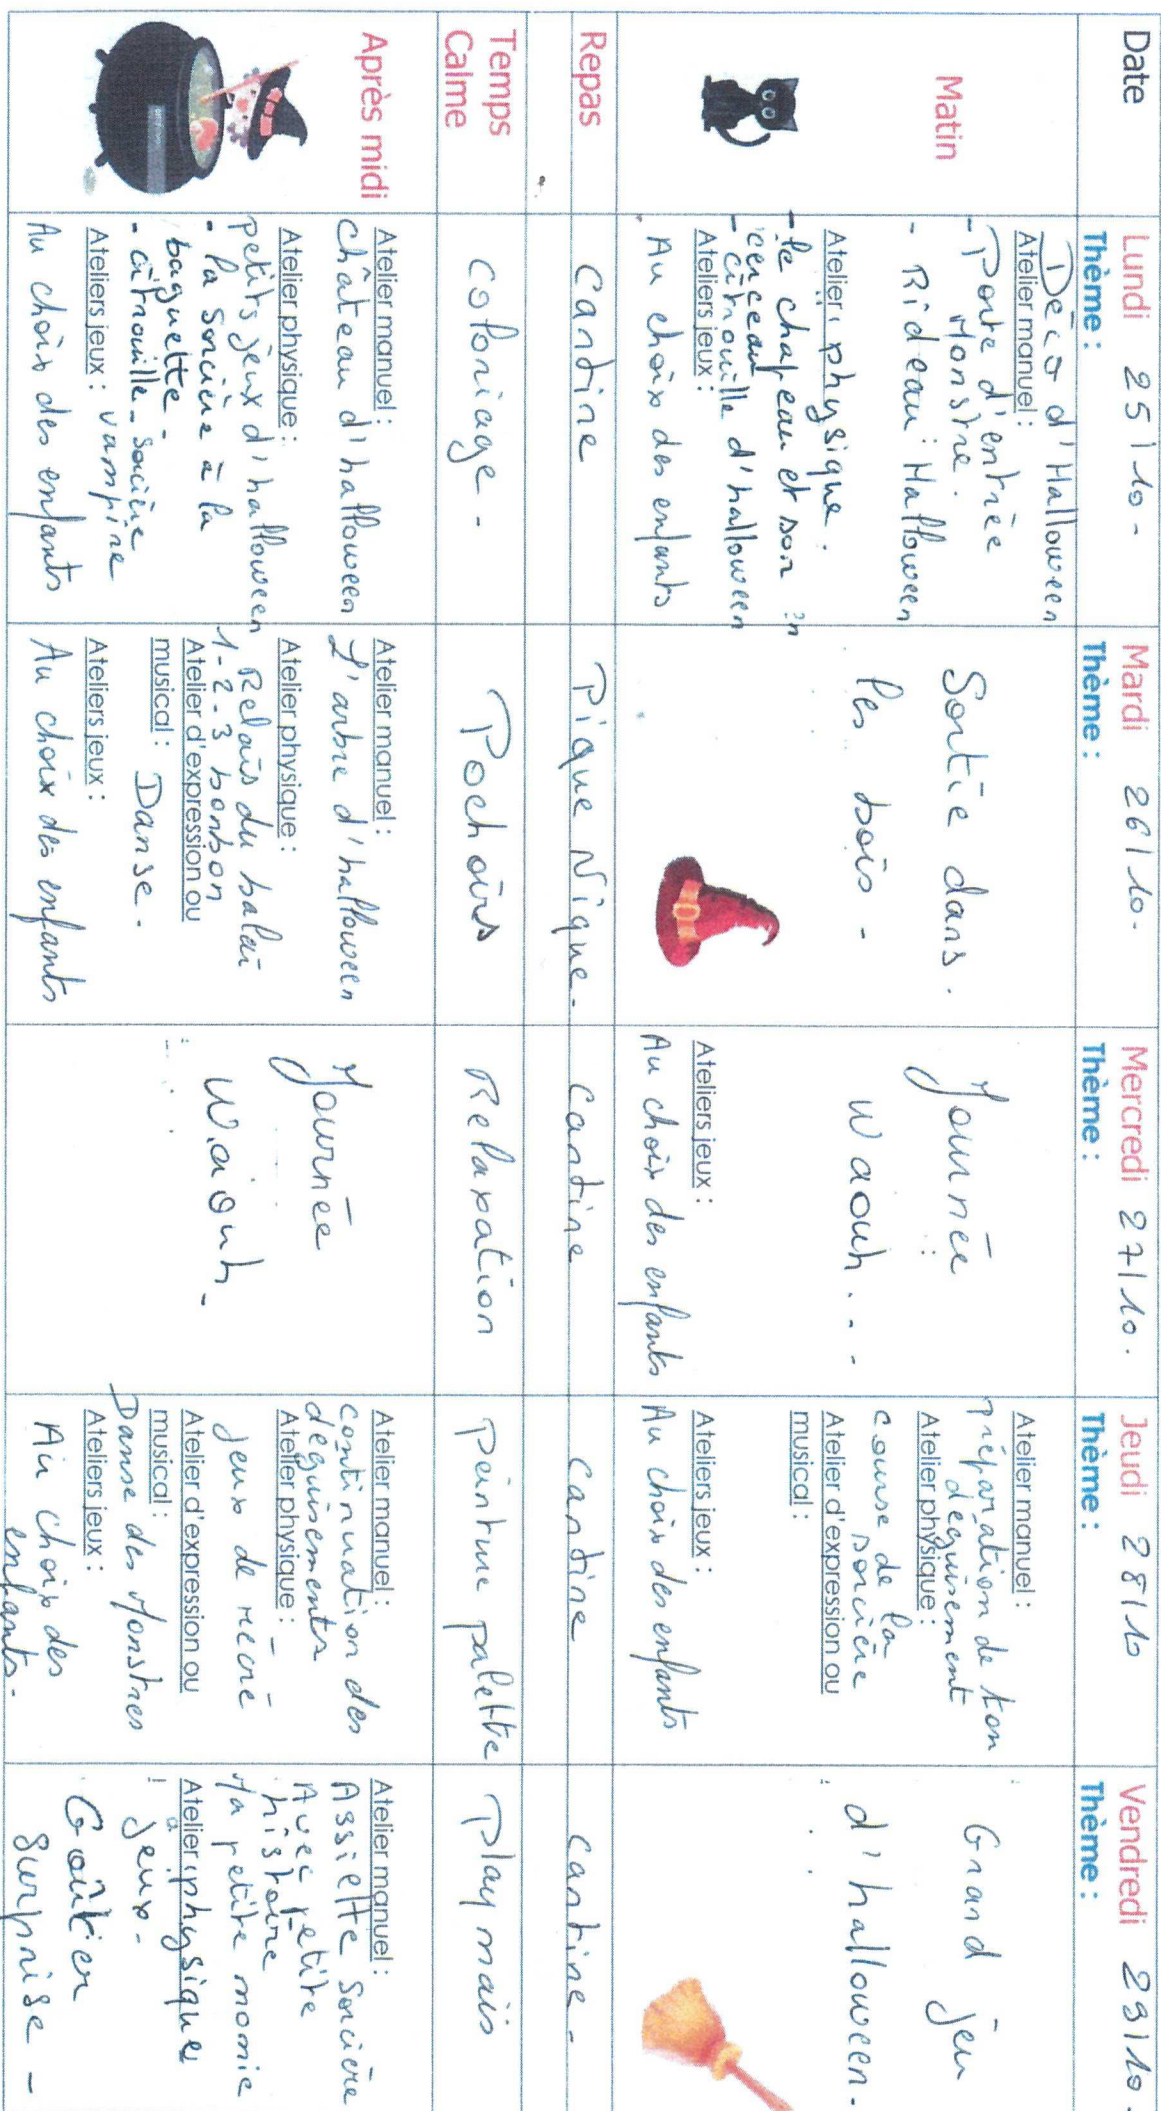 Date
Lundi 25/10-
Thème :
Mardi 26/10-
Thème :
Mercredi 27/10.
Thème :
Jeudi 28/10
Thème :
Vendredi 29/10-
Thème :
Matin
Déco d'Halloween
Atelier manuel :
- Porte d'entrée
Monstre.
- Rideau Halloween
Atelier physique.
- le chapeau et son
cerceau
- citrouille d'halloween
Ateliers jeux :
Au choix des enfants
Sortie dans.
les bois -
Journée
Waouh. - -
Ateliers jeux :
Au choix des enfants
Atelier manuel :
Préparation de ton
déguisement
Atelier physique :
Course de la
sorcière
Atelier d'expression ou
musical :
Ateliers jeux :
Au choix des enfants
Grand jeu
d'halloween-
Repas
Cantine
Pique Nique-
Cantine
Cantine
Cantine-
Temps
Calme
Coloriage -
Pochoirs
Relaxation
Peinture palette
Playmais
Après midi
Atelier manuel :
château d'halloween
Atelier physique :
petits jeux d'halloween
- la sorcière à la
baguette -
- citrouille - sorcière
Ateliers jeux : vampire
Au choix des enfants
Atelier manuel :
L'arbre d'halloween
Atelier physique :
Relais du balai
1-2-3 bonbon
Atelier d'expression ou
musical : Danse-
Ateliers jeux :
Au choix des enfants
Journée
Waouh-
Atelier manuel :
continuation des
déguisements
Atelier physique :
jeux de récré
Atelier d'expression ou
musical :
Danse des Monstres
Ateliers jeux :
Au choix des
enfants-
Atelier manuel :
Assiette Sorcière
Avec petite
histoire
Ma petite momie
Atelier physique
Jeux-
Goûter
Surprise -